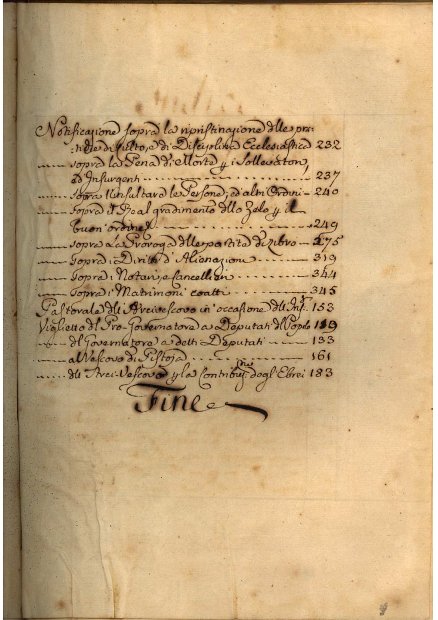 Notificazione sopra la ripristinazione dlle pra-
tiche di Culto, e di Disciplina Ecclesiastica 232
sopra la Pena di Morte p i Sollevatori,
ed Insurgenti 237
sopra l'insultare le Persone, ed altri Ordini 240
sopra il Real gradimento dllo Zelo p il
buon'ordine 249
sopra la Proroga dlle partite di Libro 275
sopra i Diritti d'Alienazioni 319
sopra i Notari, e Cancellieri 344
sopra i Matrimoni coatti 345
Pastorale dll'Arcivescovo in occasione dll'Ins. 153
Viglietto dl Pro-Governatore a Deputati dl Popolo 119
dl Governatore a detti Deputati 133
al Vescovo di Pistoja 161
dll'Arci-Vescovo p la Contribuz. degl'Ebrei 183
Fine